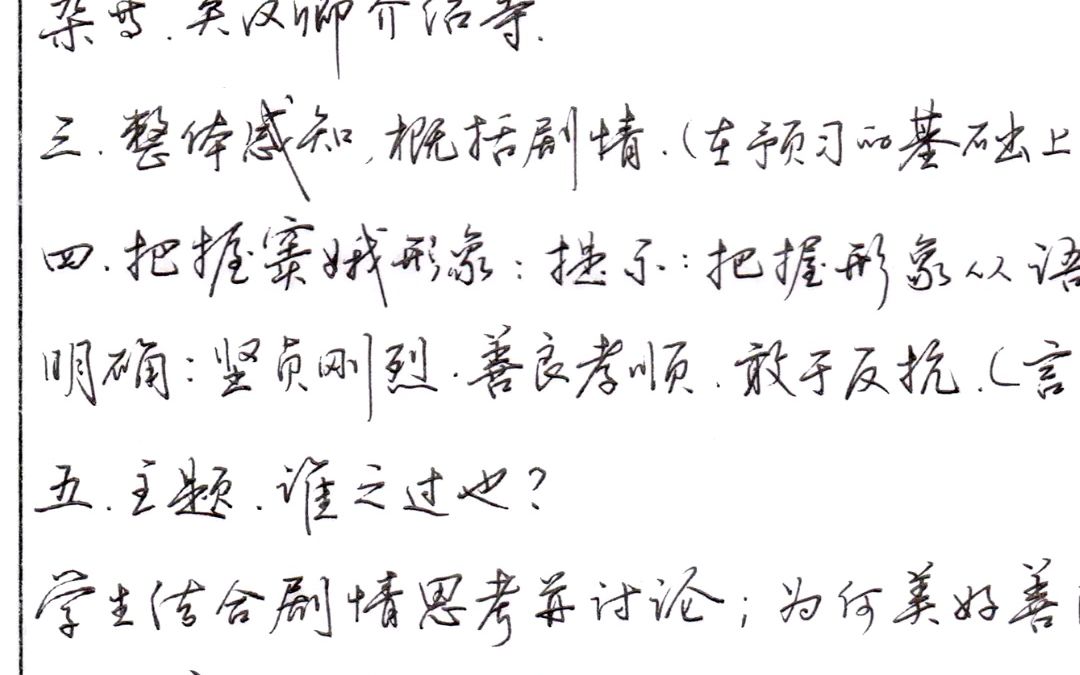 杂剧、关汉卿介绍等.
三.整体感知,概括剧情.(在预习的基础上
四.把握窦娥形象:提示:把握形象从语
明确:坚贞刚烈.善良孝顺.敢于反抗.(言
五.主题.谁之过也?
学生结合剧情思考并讨论;为何美好善